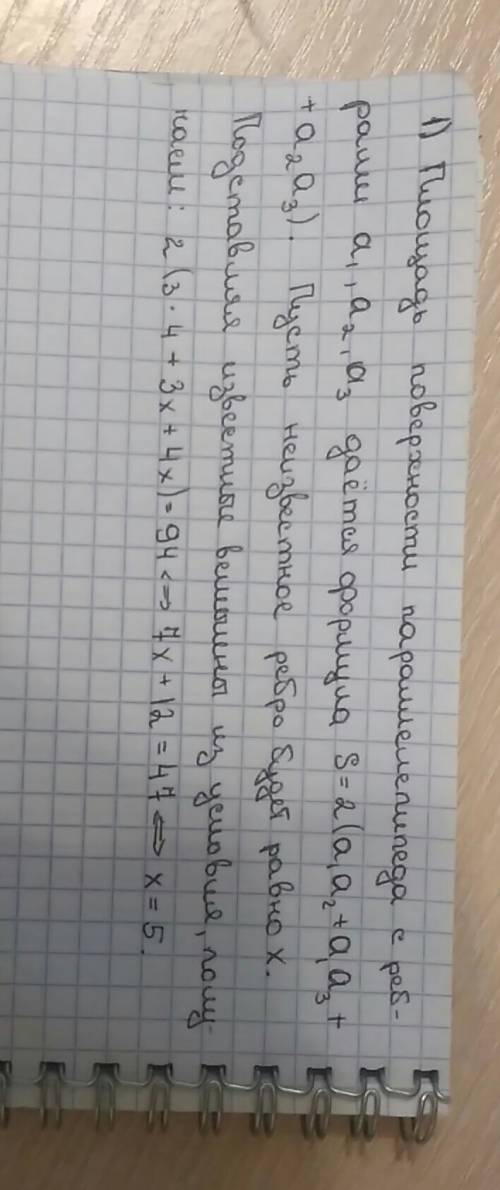 1) Площадь поверхности параллелепипеда с реб-
рами a₁, a₂, a₃ даётся формула S = 2(a₁a₂ + a₁a₃ +
+ a₂a₃). Пусть неизвестное ребро будет равно x.
Подставляя известные величины из условия, полу-
чаем: 2(3·4 + 3x + 4x) = 94 <=> 7x + 12 = 47 <=> x = 5.